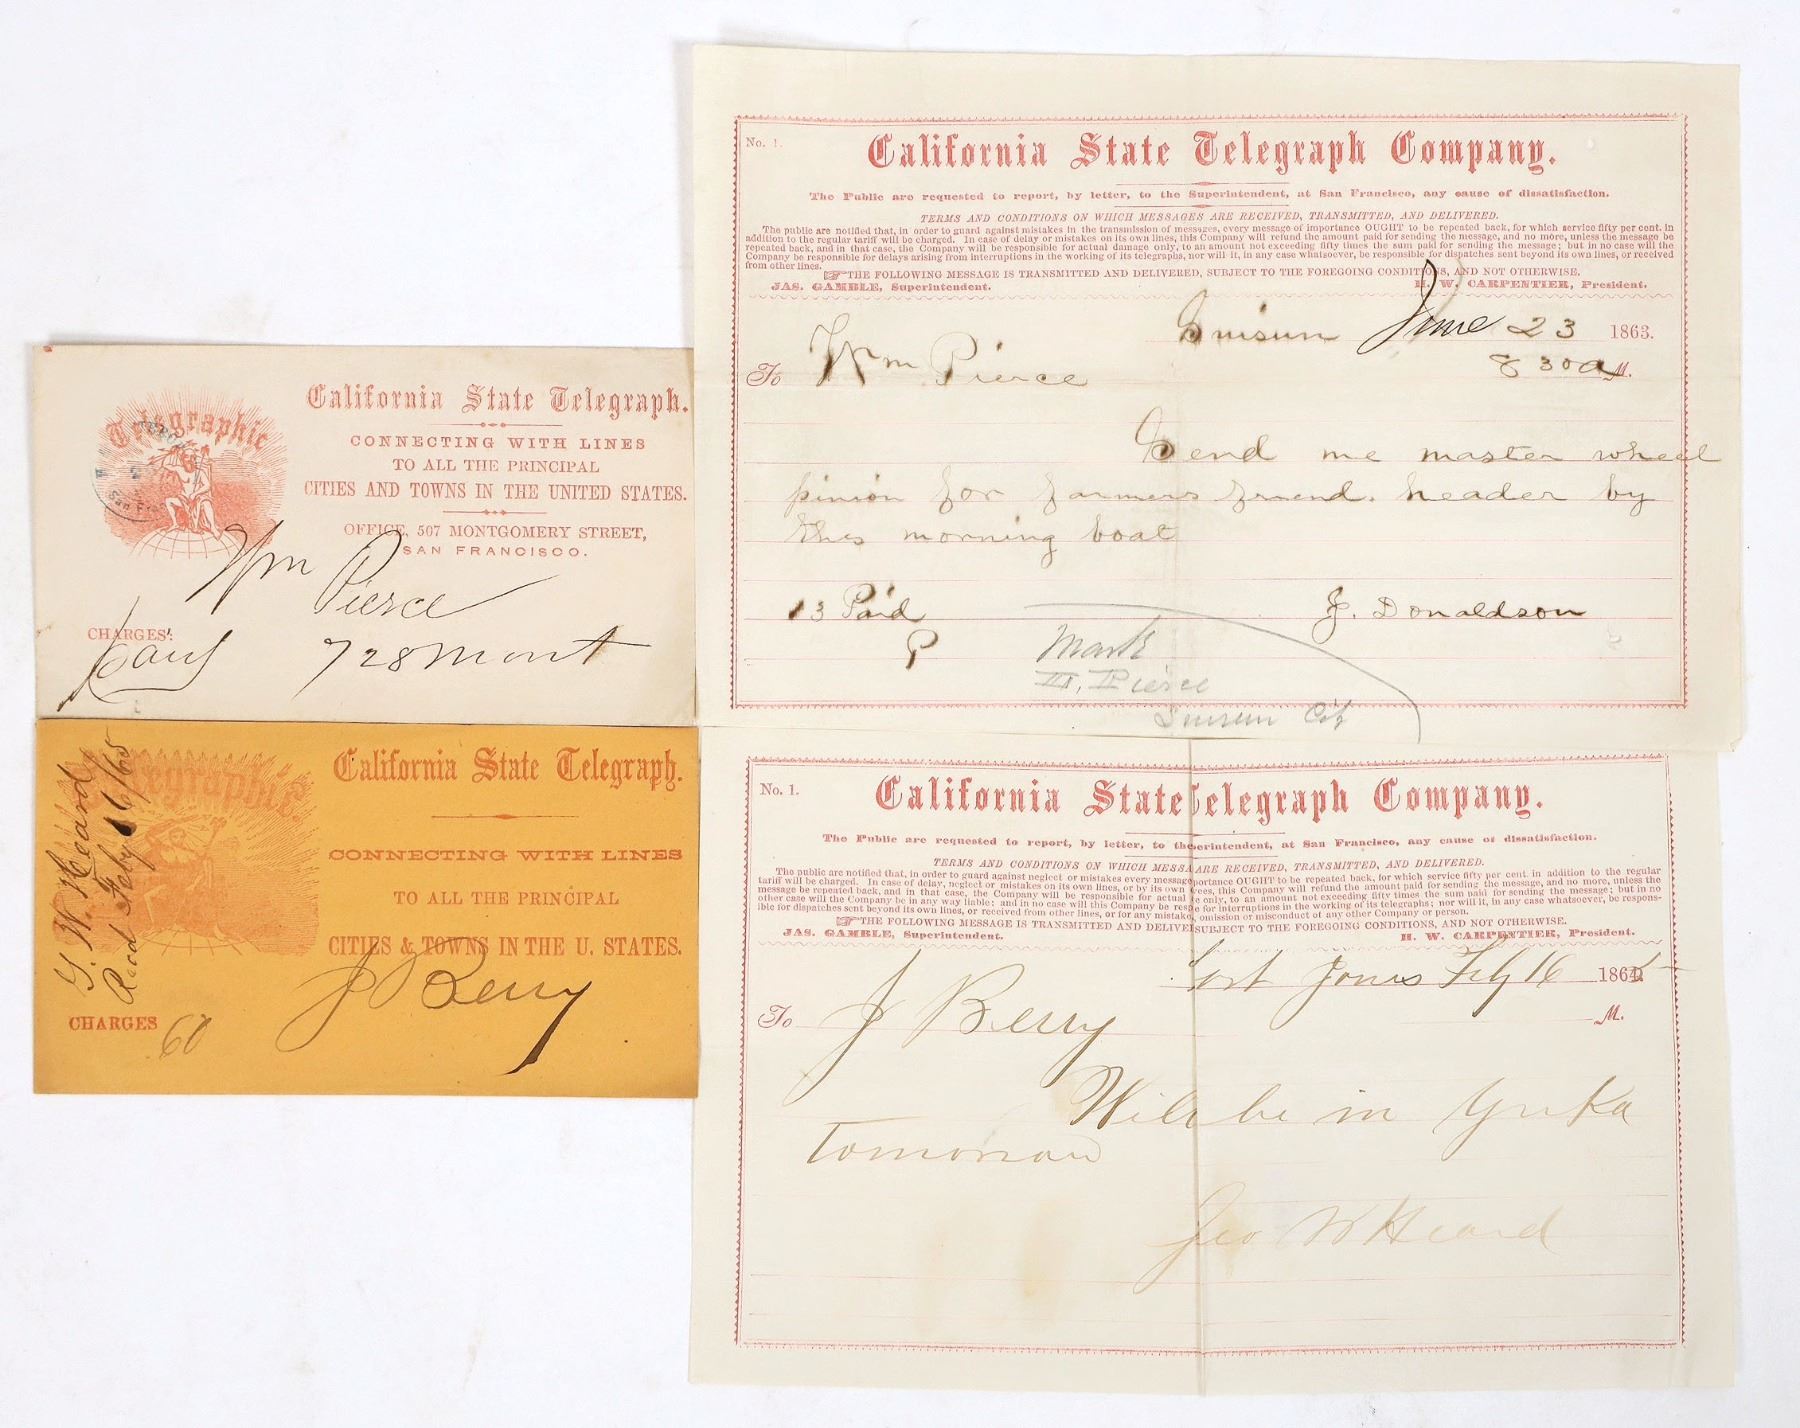 Telegraphic
San Fra
California State Telegraph.
CONNECTING WITH LINES
TO ALL THE PRINCIPAL
CITIES AND TOWNS IN THE UNITED STATES.
OFFICE, 507 MONTGOMERY STREET,
SAN FRANCISCO.
Wm
Pierce
CHARGES:
728 Mont
G. W. Heard
Recd Feby 16/65
Telegraphic
California State Telegraph.
CONNECTING WITH LINES
TO ALL THE PRINCIPAL
CITIES & TOWNS IN THE U. STATES.
J Berry
CHARGES 60
No. 1.
California State Telegraph Company.
The Public are requested to report, by letter, to the Superintendent, at San Francisco, any cause of dissatisfaction.
TERMS AND CONDITIONS ON WHICH MESSAGES ARE RECEIVED, TRANSMITTED, AND DELIVERED.
The public are notified that, in order to guard against mistakes in the transmission of messages, every message of importance OUGHT to be repeated back, for which service fifty per cent. in
addition to the regular tariff will be charged. In case of delay or mistakes on its own lines, this Company will refund the amount paid for sending the message, and no more, unless the message be
repeated back, and in that case, the Company will be responsible for actual damage only, to an amount not exceeding fifty times the sum paid for sending the message; but in no case will the
Company be responsible for delays arising from interruptions in the working of its telegraphs, nor will it, in any case whatsoever, be responsible for dispatches sent beyond its own lines, or received
from other lines.
THE FOLLOWING MESSAGE IS TRANSMITTED AND DELIVERED, SUBJECT TO THE FOREGOING CONDITIONS, AND NOT OTHERWISE.
JAS. GAMBLE, Superintendent. H. W. CARPENTIER, President.
Suisun June 23 1863.
To Wm Pierce 8 30 a M.
Send me master wheel
pinion for farmers friend. header by
this morning boat
13 Paid J. Donaldson
P
Mark
Pierce
Suisun City
No. 1.
California State Telegraph Company.
The Public are requested to report, by letter, to the Superintendent, at San Francisco, any cause of dissatisfaction.
TERMS AND CONDITIONS ON WHICH MESSA ARE RECEIVED, TRANSMITTED, AND DELIVERED.
The public are notified that, in order to guard against neglect or mistakes every message portance OUGHT to be repeated back, for which service fifty per cent. in addition to the regular
tariff will be charged. In case of delay, neglect or mistakes on its own lines, or by its own ees, this Company will refund the amount paid for sending the message, and no more, unless the
message be repeated back, and in that case, the Company will be responsible for actual e only, to an amount not exceeding fifty times the sum paid for sending the message; but in no
other case will the Company be in any way liable; and in no case will this Company be resp e for interruptions in the working of its telegraphs; nor will it, in any case whatsoever, be respons-
ible for dispatches sent beyond its own lines, or received from other lines, or for any mistake, omission or misconduct of any other Company or person.
THE FOLLOWING MESSAGE IS TRANSMITTED AND DELIVE SUBJECT TO THE FOREGOING CONDITIONS, AND NOT OTHERWISE.
JAS. GAMBLE, Superintendent. H. W. CARPENTIER, President.
Fort Jones Feby 16 1865
To J Berry M.
Will be in Yreka
Tomorrow
Geo W Heard